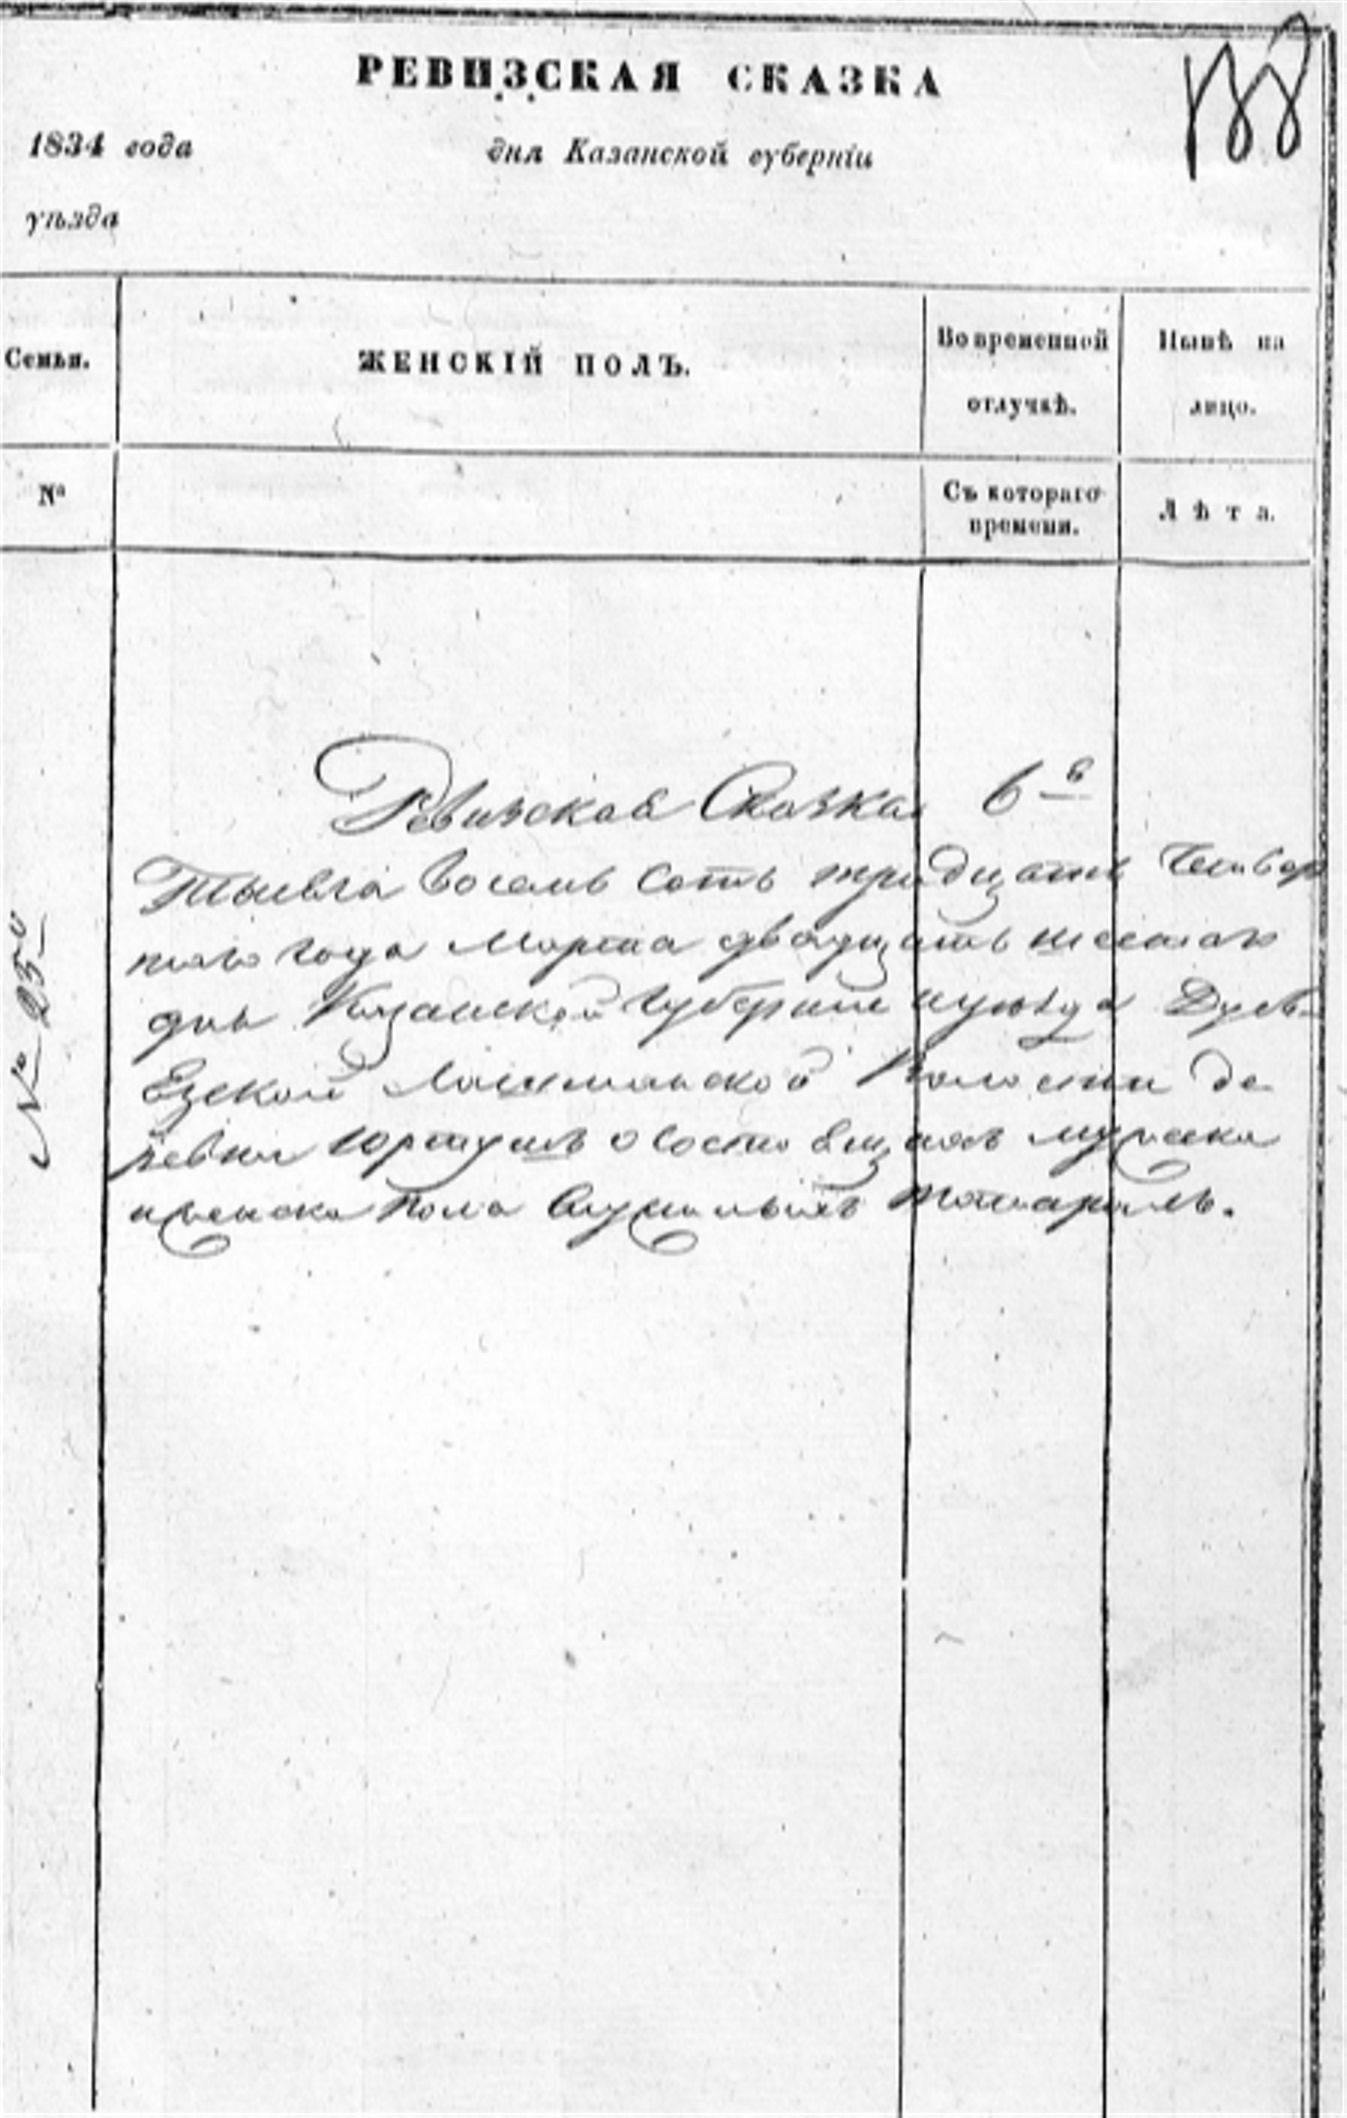 188
РЕВИЗСКАЯ СКАЗКА
1834 года дня Казанской губернiи
уѣзда
Семьи.
ЖЕНСКIЙ ПОЛЪ.
Во временной
отлучкѣ.
Нынѣ на
лицо.
№
Съ котораго
времени.
Лѣта.
№ 25
Ревизская Сказка
Тысеча восемь сотъ тридцать Четвер
таго года Марта двадцать шестаго
дня Казанской Губернии и уѣзда
Лашманской Волости де
ревни о состоящихъ мужска
и женска пола Служилыхъ татарахъ.